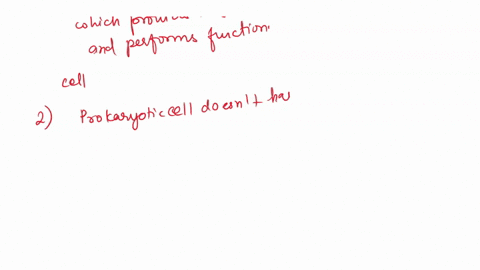 which
and performs function
cell
2) Prokaryotic cell doesn't ha